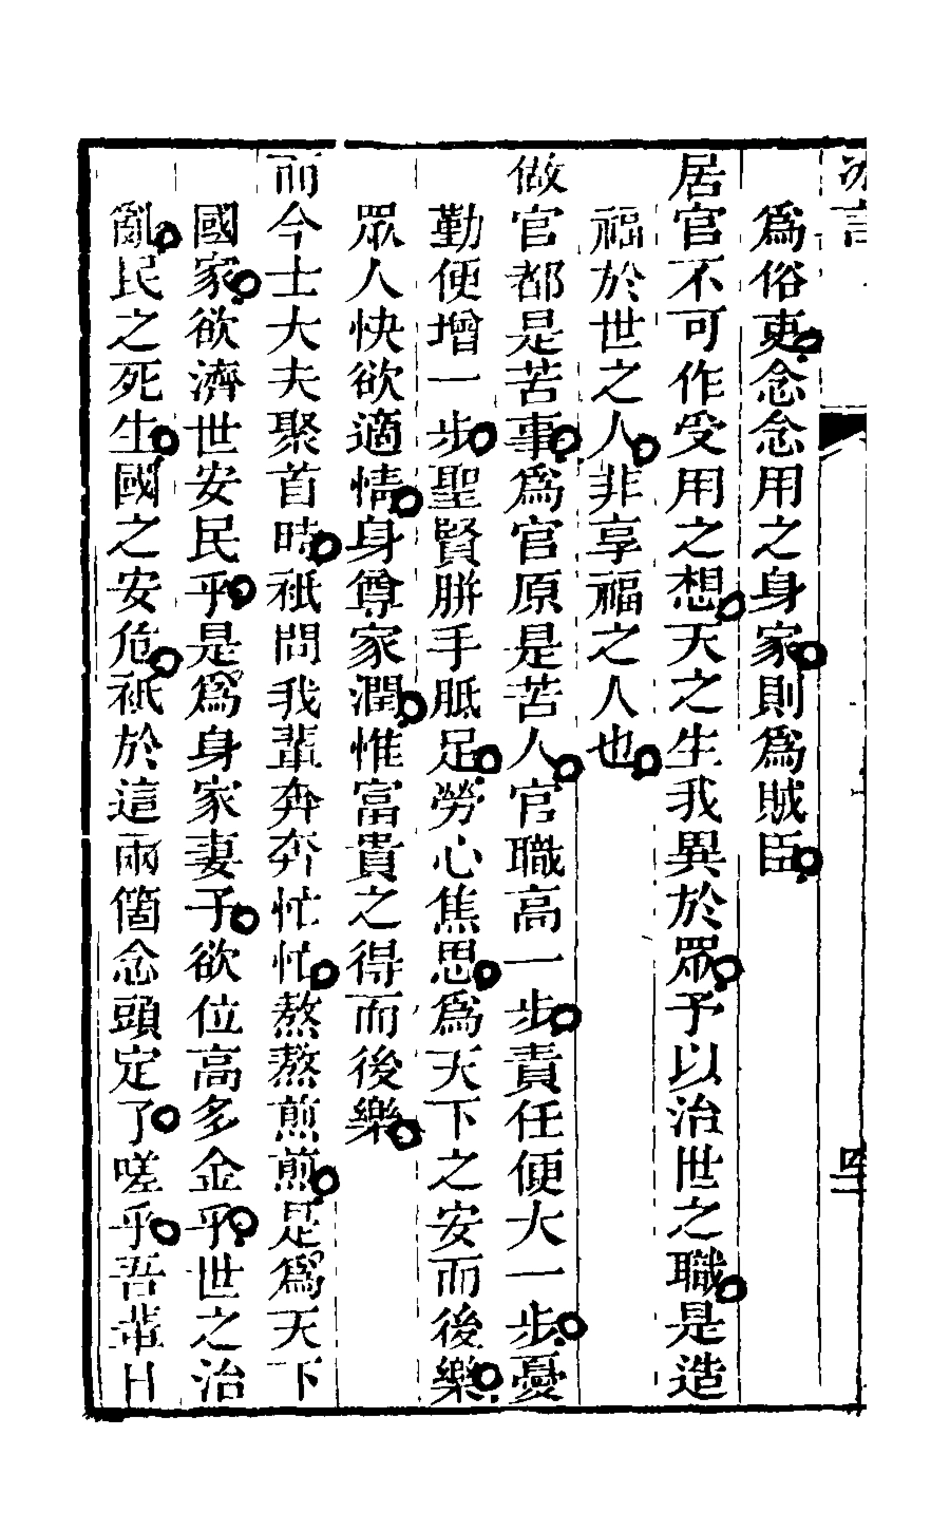 爲俗吏念念用之身家則爲賊臣
居官不可作受用之想天之生我異於眾予以治世之職是造
福於世之人非享福之人也
做官都是苦事爲官原是苦人官職高一步責任便大一步憂
勤便增一步聖賢胼手胝足勞心焦思爲天下之安而後樂
眾人快欲適情身尊家潤惟富貴之得而後樂
而今士大夫聚首時祇問我輩奔奔忙忙熬熬煎煎是爲天下
國家欲濟世安民乎是爲身家妻子欲位高多金乎世之治
亂民之死生國之安危祇於這兩箇念頭定了嗟乎吾輩日